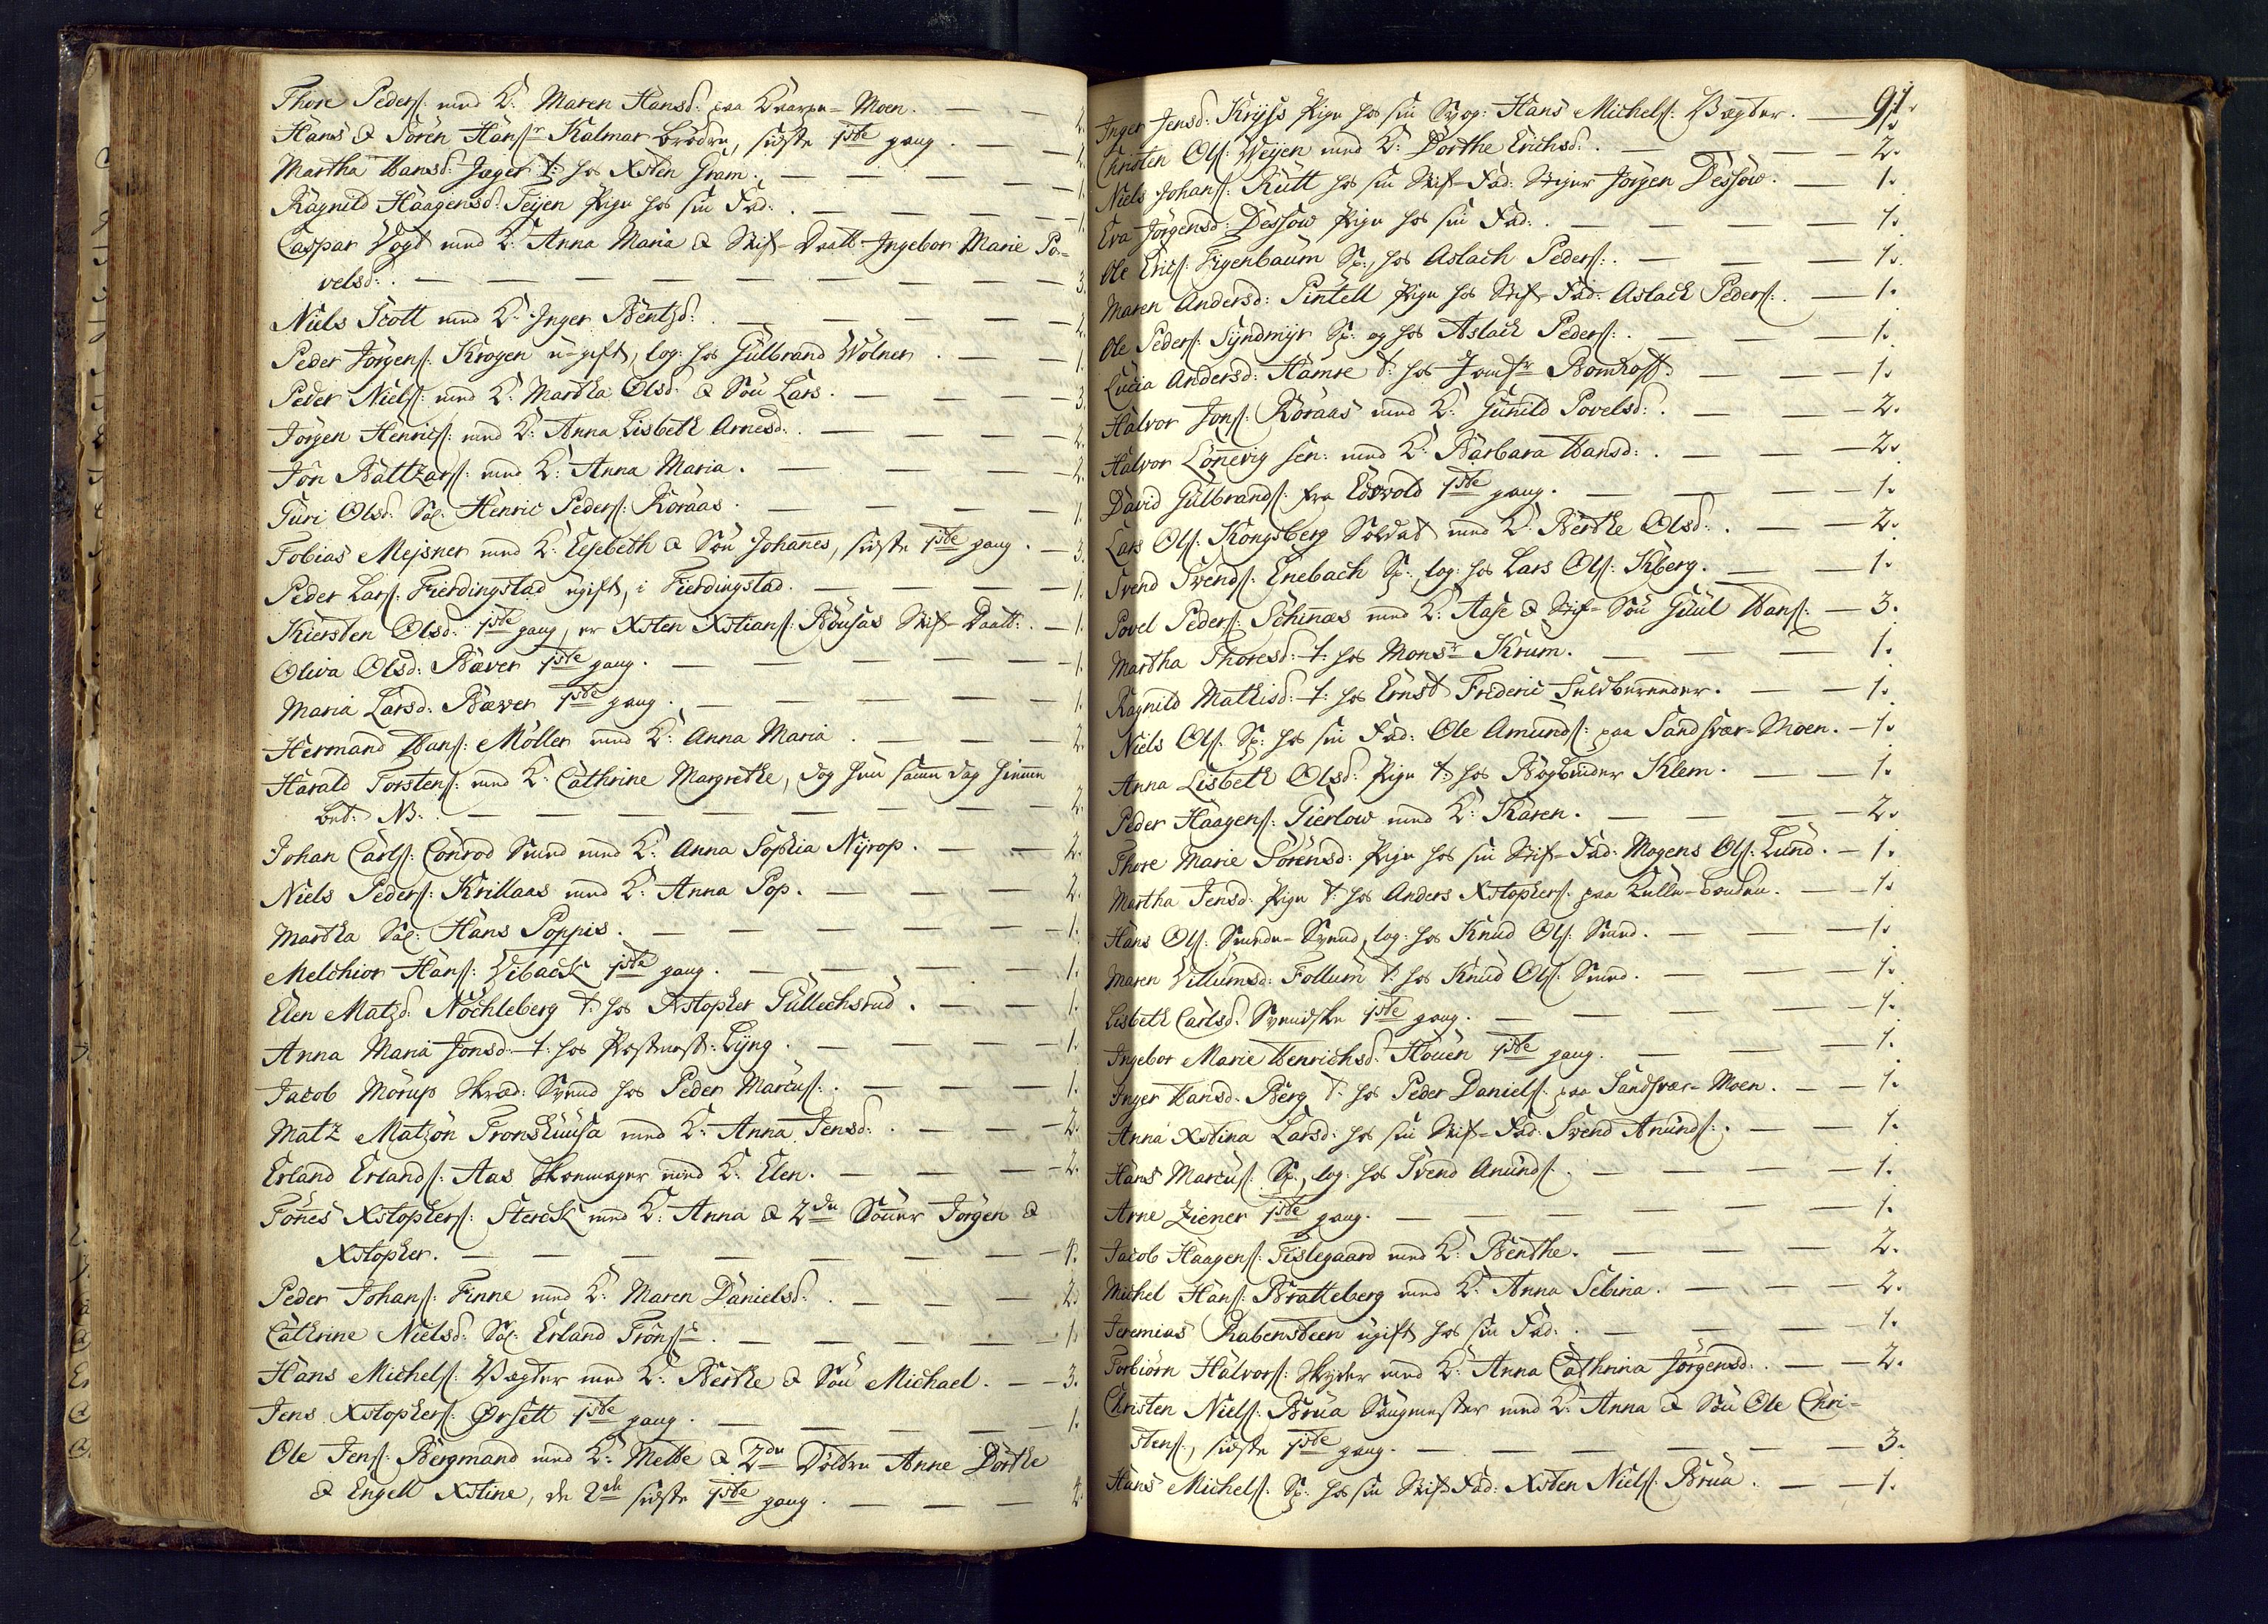 Thore Peders: med K: Maren Hansd: paa Qvarne-Moen. — 2.
Hans & Sören Hansr Kalmar brødre, sidste 1ste gang. — 2.
Martha Hansd: Jæger t: hos Xsten Gram. — 1.
Ragnild Haagensd: Teijen Pige hos sin Fad: — 1.
Caspar Vogt med K: Anna Maria & Stif-Daatt: Ingebor Marie Po-
velsd: — 3.
Niels Scott med K: Inger Bentzd: — 2.
Peder Jörgens: Krogen u-gift, log: hos Gulbrand Wölner. — 1.
Peder Niels: med K: Martha Olsd: & Sön Lars. — 3.
Jörgen Henrics: med K: Anna Lisbeth Arnesd: — 2.
Jon Baltzars: med K: Anna Maria. — 2.
Turi Olsd: Sal: Henric Peders: Röraas. — 1.
Tobias Mejsner med K: Elsebeth & Sön Johannes, sidste 1ste gang. — 3.
Peder Lars: Fierdingstad ugift, i Fierdingstad. — 1.
Kiersten Olsd: 1ste gang, er Xsten Xstians: Bousas Stif-Daatt: — 1.
Oliva Olsd: Bæver 1ste gang. — 1.
Maria Larsd: Bæver 1ste gang. — 1.
Hermand Hans: Möller med K: Anna Maria. — 2.
Harald Torstens: med K: Cathrine Margrethe, dog hun samme dag hiemme
bet: NB: — 2.
Johan Carls: Conrod Smed med K: Anna Sophia Nyrop. — 2.
Niels Peders: Krillaas med K: Anna Pop. — 2.
Martha Sal: Hans Poppis. — 1.
Melchior Hans: Vibach 1ste gang. — 1.
Elen Matzd: Nöchleberg t: hos Xstopher Gullechsrud. — 1.
Anna Maria Jonsd: t: hos Postmest: Lyng. — 1.
Jacob Mörup Skræd: Svend hos Peder Marcus: — 1.
Matz Matzön Tronshuusa med K: Anna Jensd: — 2.
Erland Erlands: Aas Skomager med K: Elen. — 2.
Tönes Xstophers: Sterch med K: Anna & 2de Sönner Jörgen &
Xstopher. — 4.
Peder Johans: Finne med K: Maren Danielsd: — 2.
Cathrine Nielsd: Sal: Erland Trons: — 1.
Hans Michels: Vægter med K: Berthe & Sön Michael. — 3.
Jens Xstophers: Ørsett 1ste gang. — 1.
Ole Jens: Bergmand med K: Mette & 2de Döttre Anne Dorthe
& Engell Xstine, de 2de sidste 1ste gang. — 4.
91.
Inger Jensd: Kryss Pige hos sin Svog: Hans Michels: Vægter. — 1.
Christen Ols: Weijen med K: Dorthe Erichsd: — 2.
Niels Johans: Rutt hos sin Stif-Fad: Stiger Jörgen Dessow. — 1.
Eva Jörgensd: Dessow Pige hos sin Fad: — 1.
Ole Erics: Figenbaum Sp:, hos Aslach Peders: — 1.
Maren Andersd: Pintell Pige hos Stif-Fad: Aslach Peders: — 1.
Ole Peders: Syndmyr Sp: og hos Aslach Peders: — 1.
Lucia Andersd: Hamre t: hos Jomfr Bomhoff. — 1.
Halvor Jons: Röraas med K: Gunild Povelsd: — 2.
Halvor Lönevig sen: med K: Barbara Hansd: — 2.
David Gulbrands: fra Edsvold 1ste gang. — 1.
Lars Ols: Kongsberg Soldat med K: Berthe Olsd: — 2.
Svend Svends: Enebach Sp:, log: hos Lars Ols: Kberg. — 1.
Povel Peders: Schinæs med K: Aase & Stif-Sön Guul Hans: — 3.
Martha Thoresd: t: hos Monsr Krum. — 1.
Ragnild Mathisd: t: hos Ernst Frideric Guldbrender. — 1.
Niels Ols: Sp: hos sin Fad: Ole Amunds: paa Sandsvær-Moen. — 1.
Anna Lisbeth Olsd: Pige t: hos Bogbinder Klem. — 1.
Peder Haagens: Gierlow med K: Karen. — 2.
Thore Marie Sörensd: Pige hos sin Stif-Fad: Mogens Ols: Lund. — 1.
Martha Jensd: Pige t: hos Anders Xstophers: paa — 1.
Hans Ols: Smede-Svend, log: hos Knud Ols: Smed. — 1.
Maren Villumsd: Follum t: hos Knud Ols: Smed. — 1.
Lisbeth Carlsd: Svendske 1ste gang. — 1.
Ingebor Marie Henrichsd: Houen 1ste gang. — 1.
Inger Hansd: Berg t: hos Peder Daniels: paa Sandsvær-Moen. — 1.
Anna Xstina Larsd: hos sin Stif-Fad: Svend Anunds: — 1.
Hans Marcus: Sp:, log: hos Svend Anunds: — 1.
Arne Ziener 1ste gang. — 1.
Jacob Haagens: Tislegaard med K: Benthe. — 2.
Michel Hans: Bratteberg med K: Anna Sebina. — 2.
Jeremias Rabensteen ugift hos sin Fad: — 1.
Torbiörn Halvors: Skyder med K: Anna Cathrina Jörgensd: — 2.
Christen Niels: Brua Saugmester med K: Anna & Sön Ole Chri-
stens:, sidste 1ste gang. — 3.
Hans Michels: Sp: hos sin Stif-Fad: Xsten Niels: Brua. — 1.